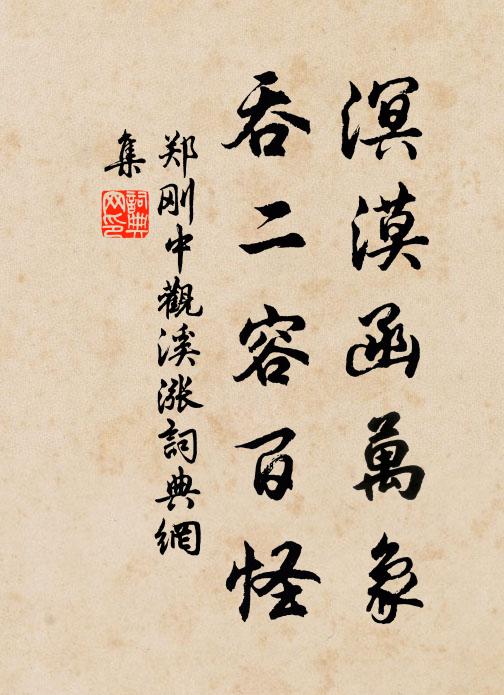 溟漠函萬象
吞二容百怪
郑刚中觀溪漲詞典網
集
詞典
网印